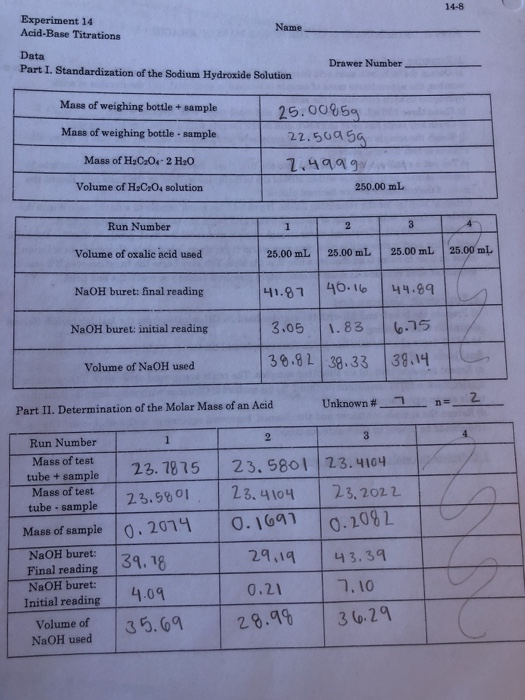 14-8
Experiment 14
Acid-Base Titrations
Name
Data
Drawer Number
Part I. Standardization of the Sodium Hydroxide Solution
Mass of weighing bottle + sample 25.0085g
Mass of weighing bottle - sample 22.5095g
Mass of H₂C₂O₄· 2 H₂O 2.4999g
Volume of H₂C₂O₄ solution 250.00 mL
Run Number 1 2 3 4
Volume of oxalic acid used 25.00 mL 25.00 mL 25.00 mL 25.00 mL
NaOH buret: final reading 41.87 40.16 44.89
NaOH buret: initial reading 3.05 1.83 6.75
Volume of NaOH used 38.82 38.33 38.14
Part II. Determination of the Molar Mass of an Acid Unknown # 7 n= 2
Run Number 1 2 3 4
Mass of test
tube + sample 23.7875 23.5801 23.4104
Mass of test
tube - sample 23.5801 23.4104 23.2022
Mass of sample 0.2074 0.1697 0.2082
NaOH buret:
Final reading 39.78 29.19 43.39
NaOH buret:
Initial reading 4.09 0.21 7.10
Volume of
NaOH used 35.69 28.98 36.29